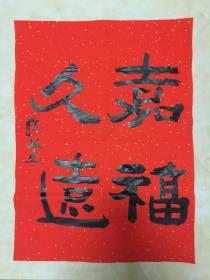 嘉福
久遠